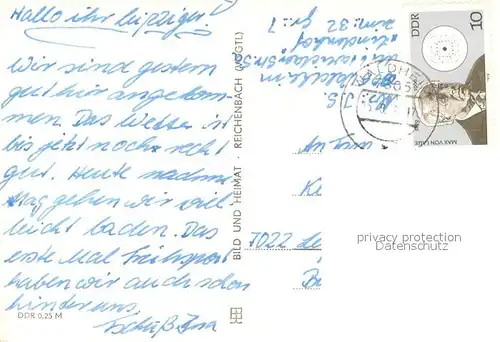 Hallo ihr Leipziger!
Wir sind gestern
gut hier angekom-
men. Das Wetter ist
bis jetzt noch recht
gut. Heute nachmi-
ttag gehen wir viel-
leicht baden. Das
erste Mal Frühsport
haben wir auch schon
hinter uns.
Tschüß
DDR 0,25 M
BILD UND HEIMAT · REICHENBACH (VOGTL)
zim: 32 Gr.: 7
"Lindenhof"
J. S.
7022 Le
DDR
10
MAX VON LAUE
privacy protection
Datenschutz